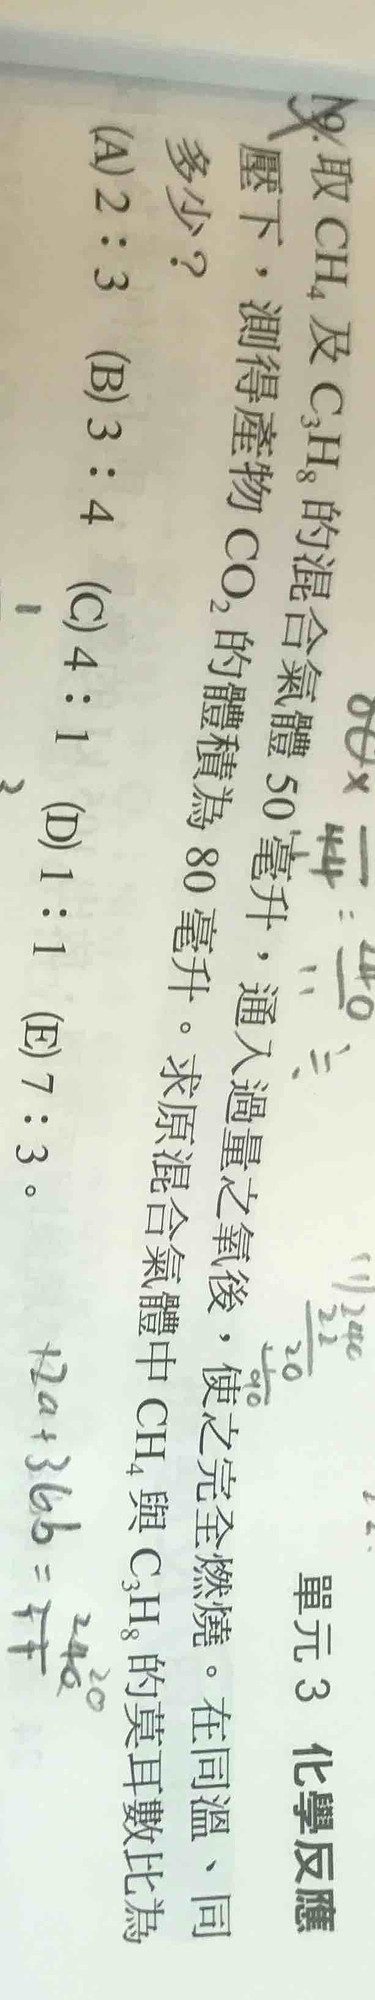 單元 3 化學反應
19. 取 CH₄ 及 C₃H₈ 的混合氣體 50 毫升，通入過量之氧後，使之完全燃燒。在同溫、同
壓下，測得產物 CO₂ 的體積為 80 毫升。求原混合氣體中 CH₄ 與 C₃H₈ 的莫耳數比為
多少？
(A) 2：3 (B) 3：4 (C) 4：1 (D) 1：1 (E) 7：3。
12a+36b=
240
20